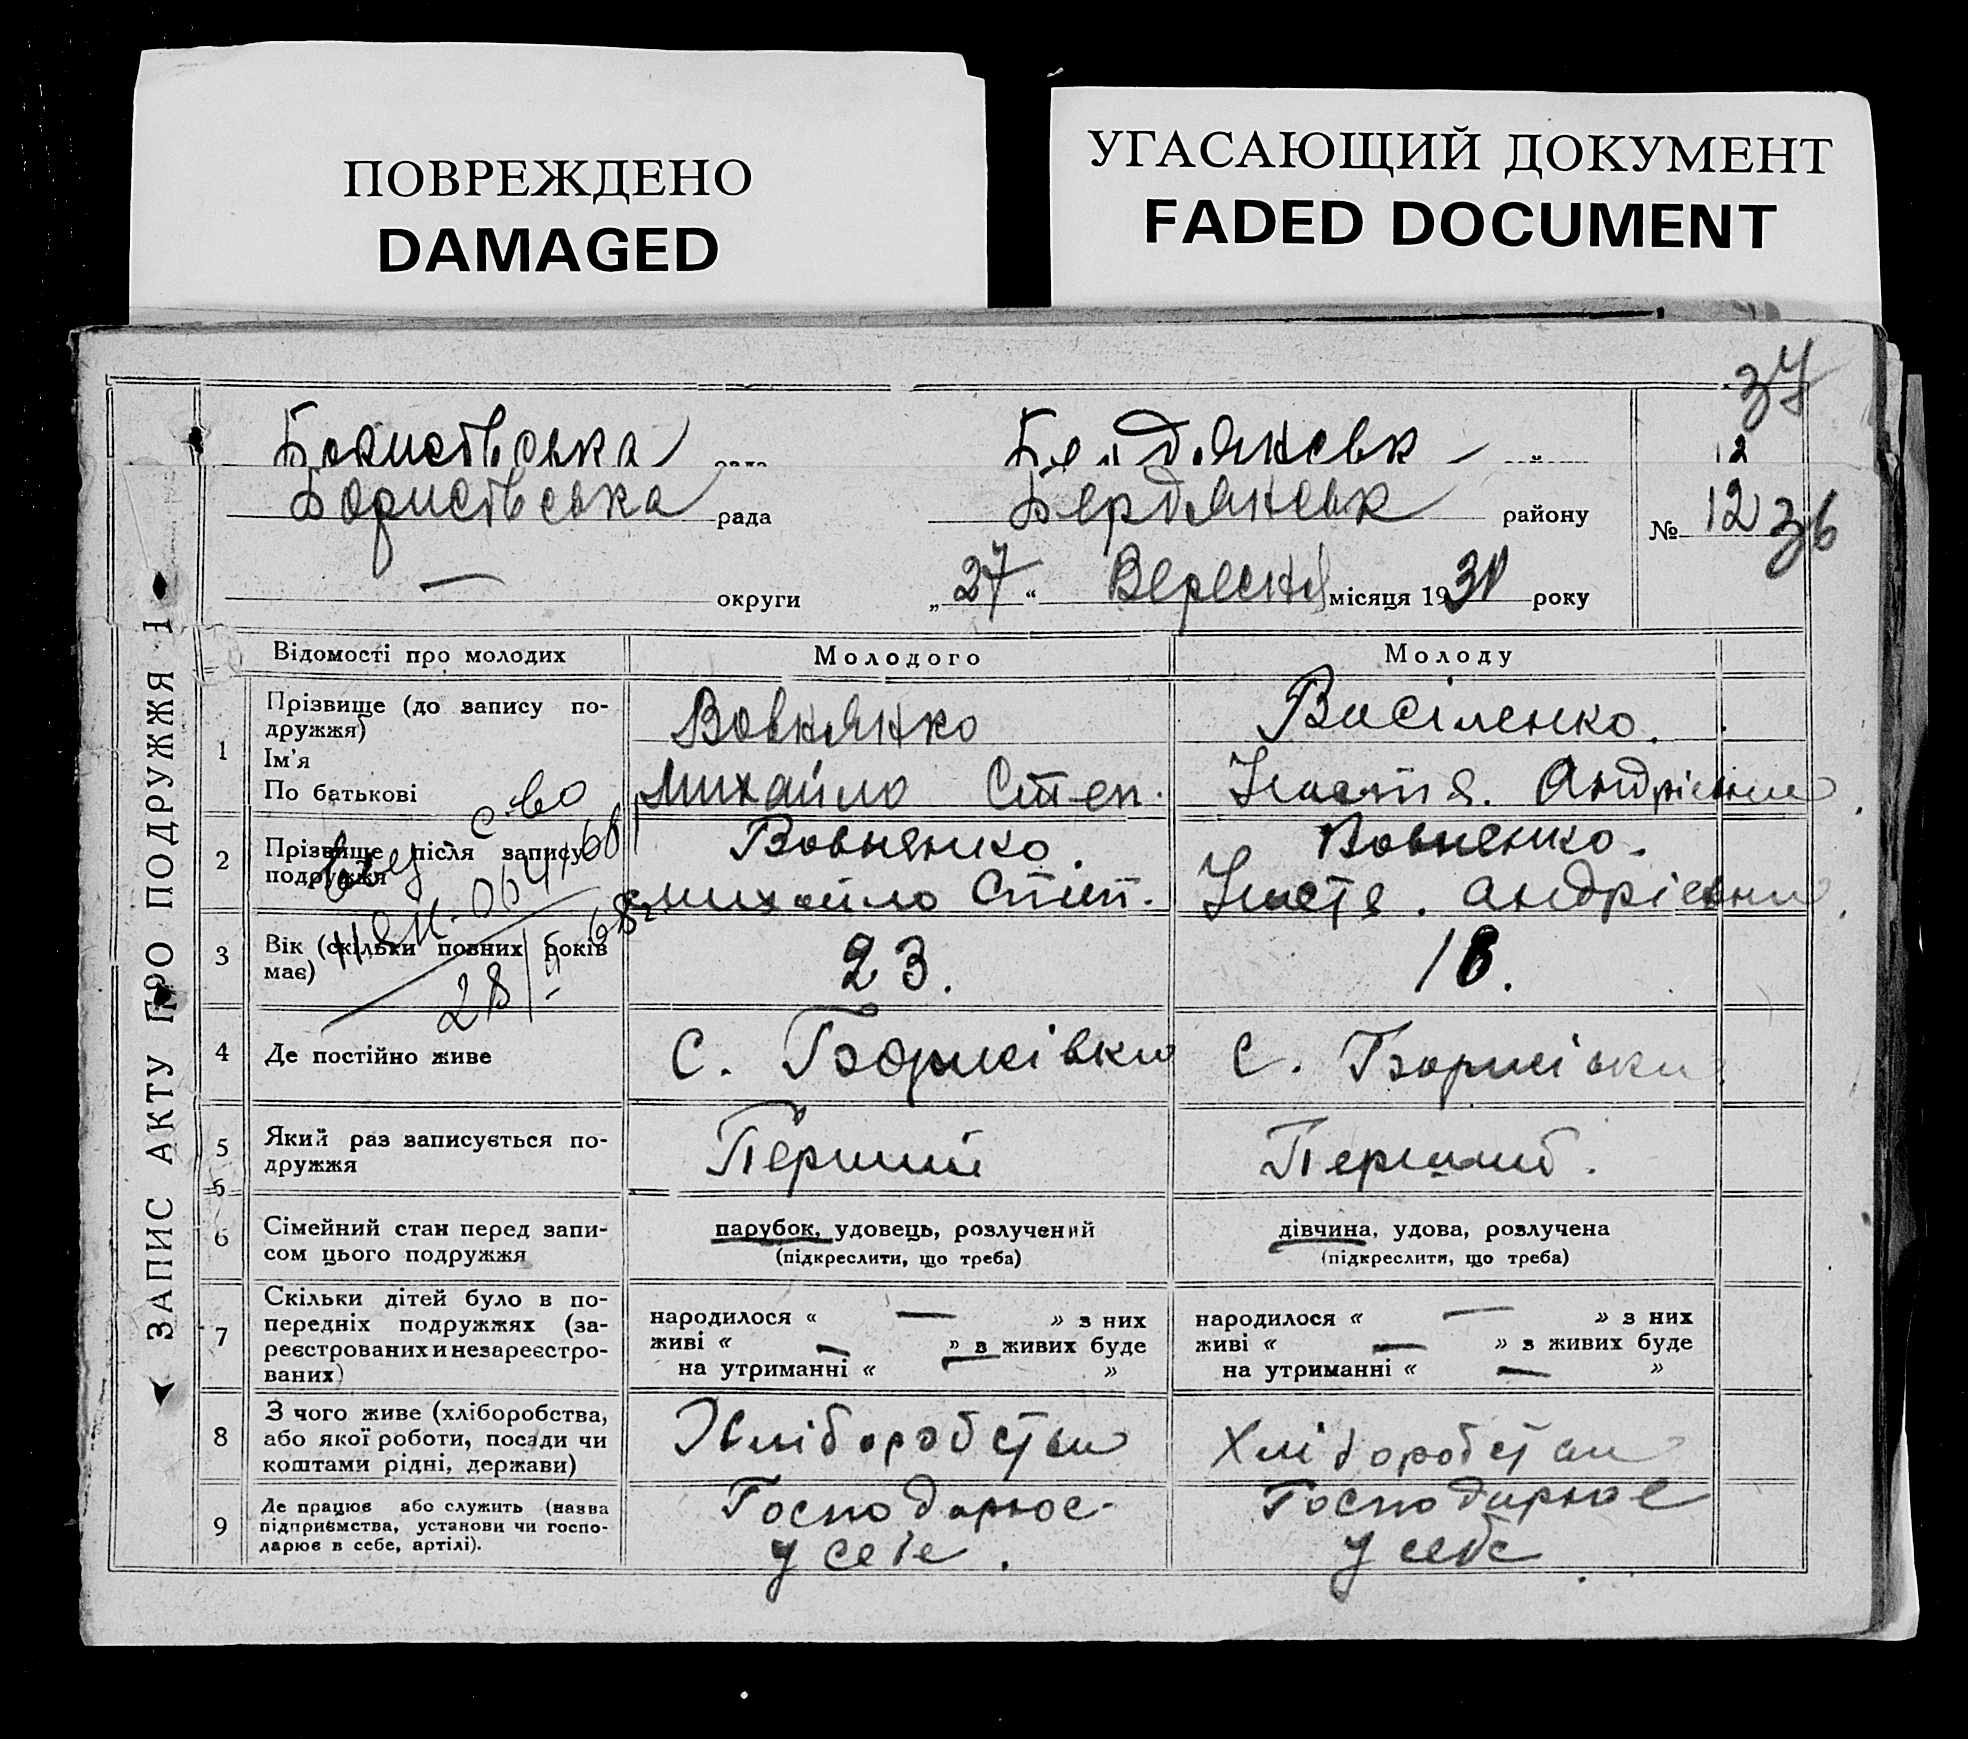 ПОВРЕЖДЕНО
DAMAGED
УГАСАЮЩИЙ ДОКУМЕНТ
FADED DOCUMENT
37
Борисівська рада Бердянськ району № 12
36
— округи „27“ Вересня місяця 1930 року
ЗАПИС АКТУ ПРО ПОДРУЖЖЯ 1
Відомості про молодих Молодого Молоду
1 Прізвище (до запису по-
дружжя)
Ім'я
По батькові
Вовнянко
Михайло Степ.
Васіленко.
Настя. Андрієвна.
2 Прізвище після запису
подружжя
Вовнянко.
Михайло Степ.
Вовненко.
Настя. Андрієвна.
с-во
68
28/
68
3 Вік (скільки повних років
має)
23.
18.
4 Де постійно живе
с. Борисівки
с. Борисівки
5 Який раз записується по-
дружжя
Перший
Перший.
6 Сімейний стан перед запи-
сом цього подружжя
парубок, удовець, розлучений
(підкреслити, що треба)
дівчина, удова, розлучена
(підкреслити, що треба)
7 Скільки дітей було в по-
передніх подружжях (за-
реєстрованих и незареєстро-
ваних)
народилося « — » з них
живі « — » з живих буде
на утриманні « — »
народилося « — » з них
живі « — » з живих буде
на утриманні « — »
8 З чого живе (хліборобства,
або якої роботи, посади чи
коштами рідні, держави)
Хліборобства
Хліборобства
9 Де працює або служить (назва
підприємства, установи чи госпо-
дарює в себе, артілі).
Господарює
у себе.
Господарює
у себе